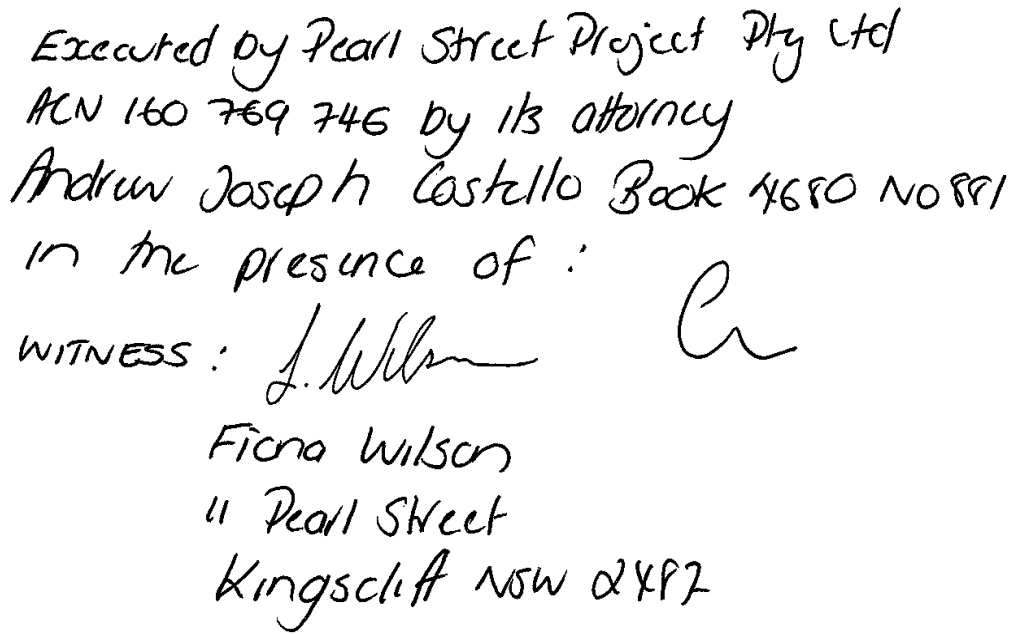 Executed by Pearl Street Project Pty Ltd
ACN 160 769 746 by its attorney
Andrew Joseph Costello Book 4680 No 881
in the presence of :
WITNESS : f. Wilson
Fiona Wilson
11 Pearl Street
Kingscliff NSW 2487